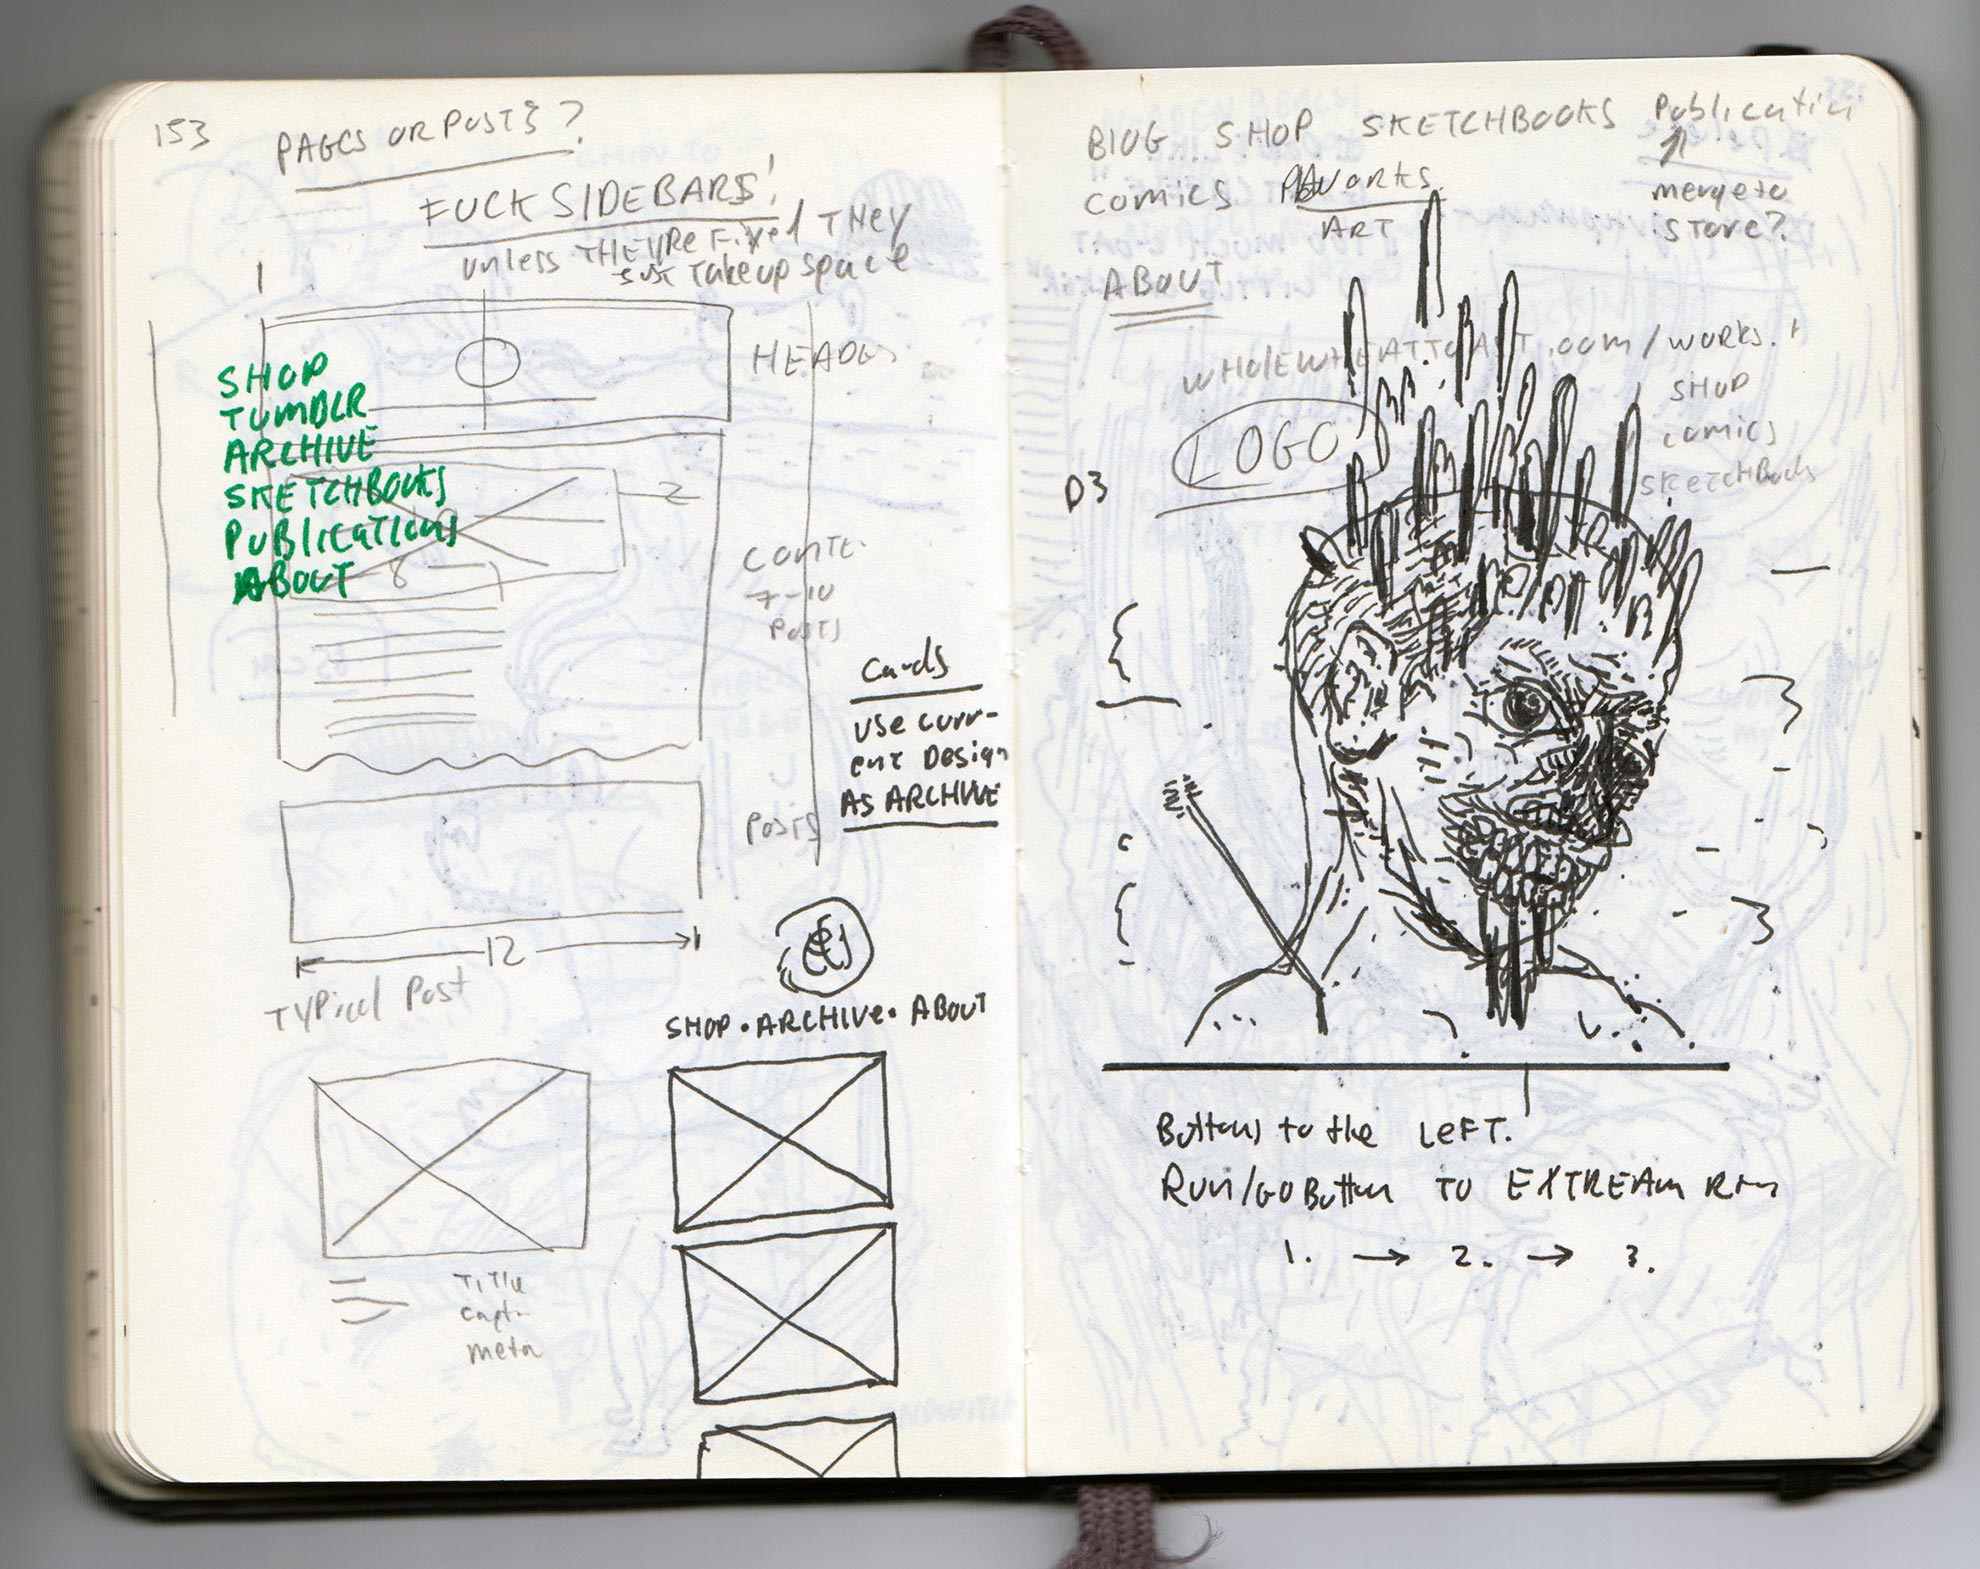 153
PAGES OR POSTS?
FUCK SIDEBARS!
unless THEYRE Fixed THEY
JUST TAKE up space
1
HEADER
SHOP
TUMBLR
ARCHIVE
SKETCHBOOKS
PUBLICATIONS
ABOUT
2
8
CONTE
7-10
POSTS
cards
USE CURR-
ENT DESIGN
AS ARCHIVE
POSTS
12
TYPICAL POST
SHOP • ARCHIVE • ABOUT
TITLE
capt
meta
BLOG SHOP SKETCHBOOKS Publication
comics WORKS
ART
merge to
store?
ABOUT
WHOLEWHEATTOAST.com/works
SHOP
comics
SKETCHBOOKS
LOGO
D3
Buttons to the LEFT.
RUN/GO Button TO EXTREAM
1. → 2. → 3.